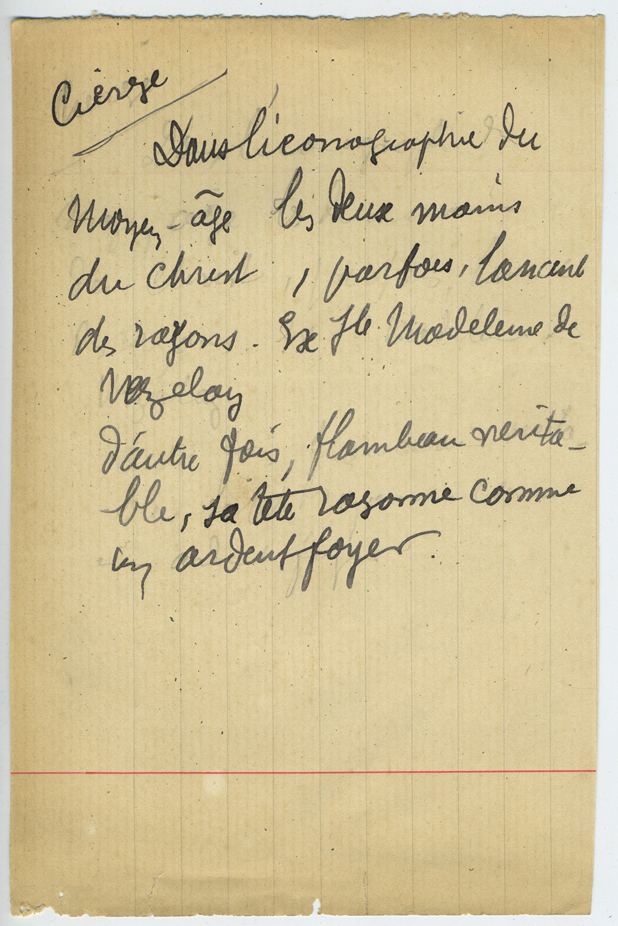 Cierge
Dans l'iconographie du
Moyen-âge les deux mains
du Christ, parfois, lancent
des rayons. Ex Ste Madeleine de
Vezelay
d'autre fois, flambeau verita-
ble, sa tete rayonne comme
un ardent foyer.